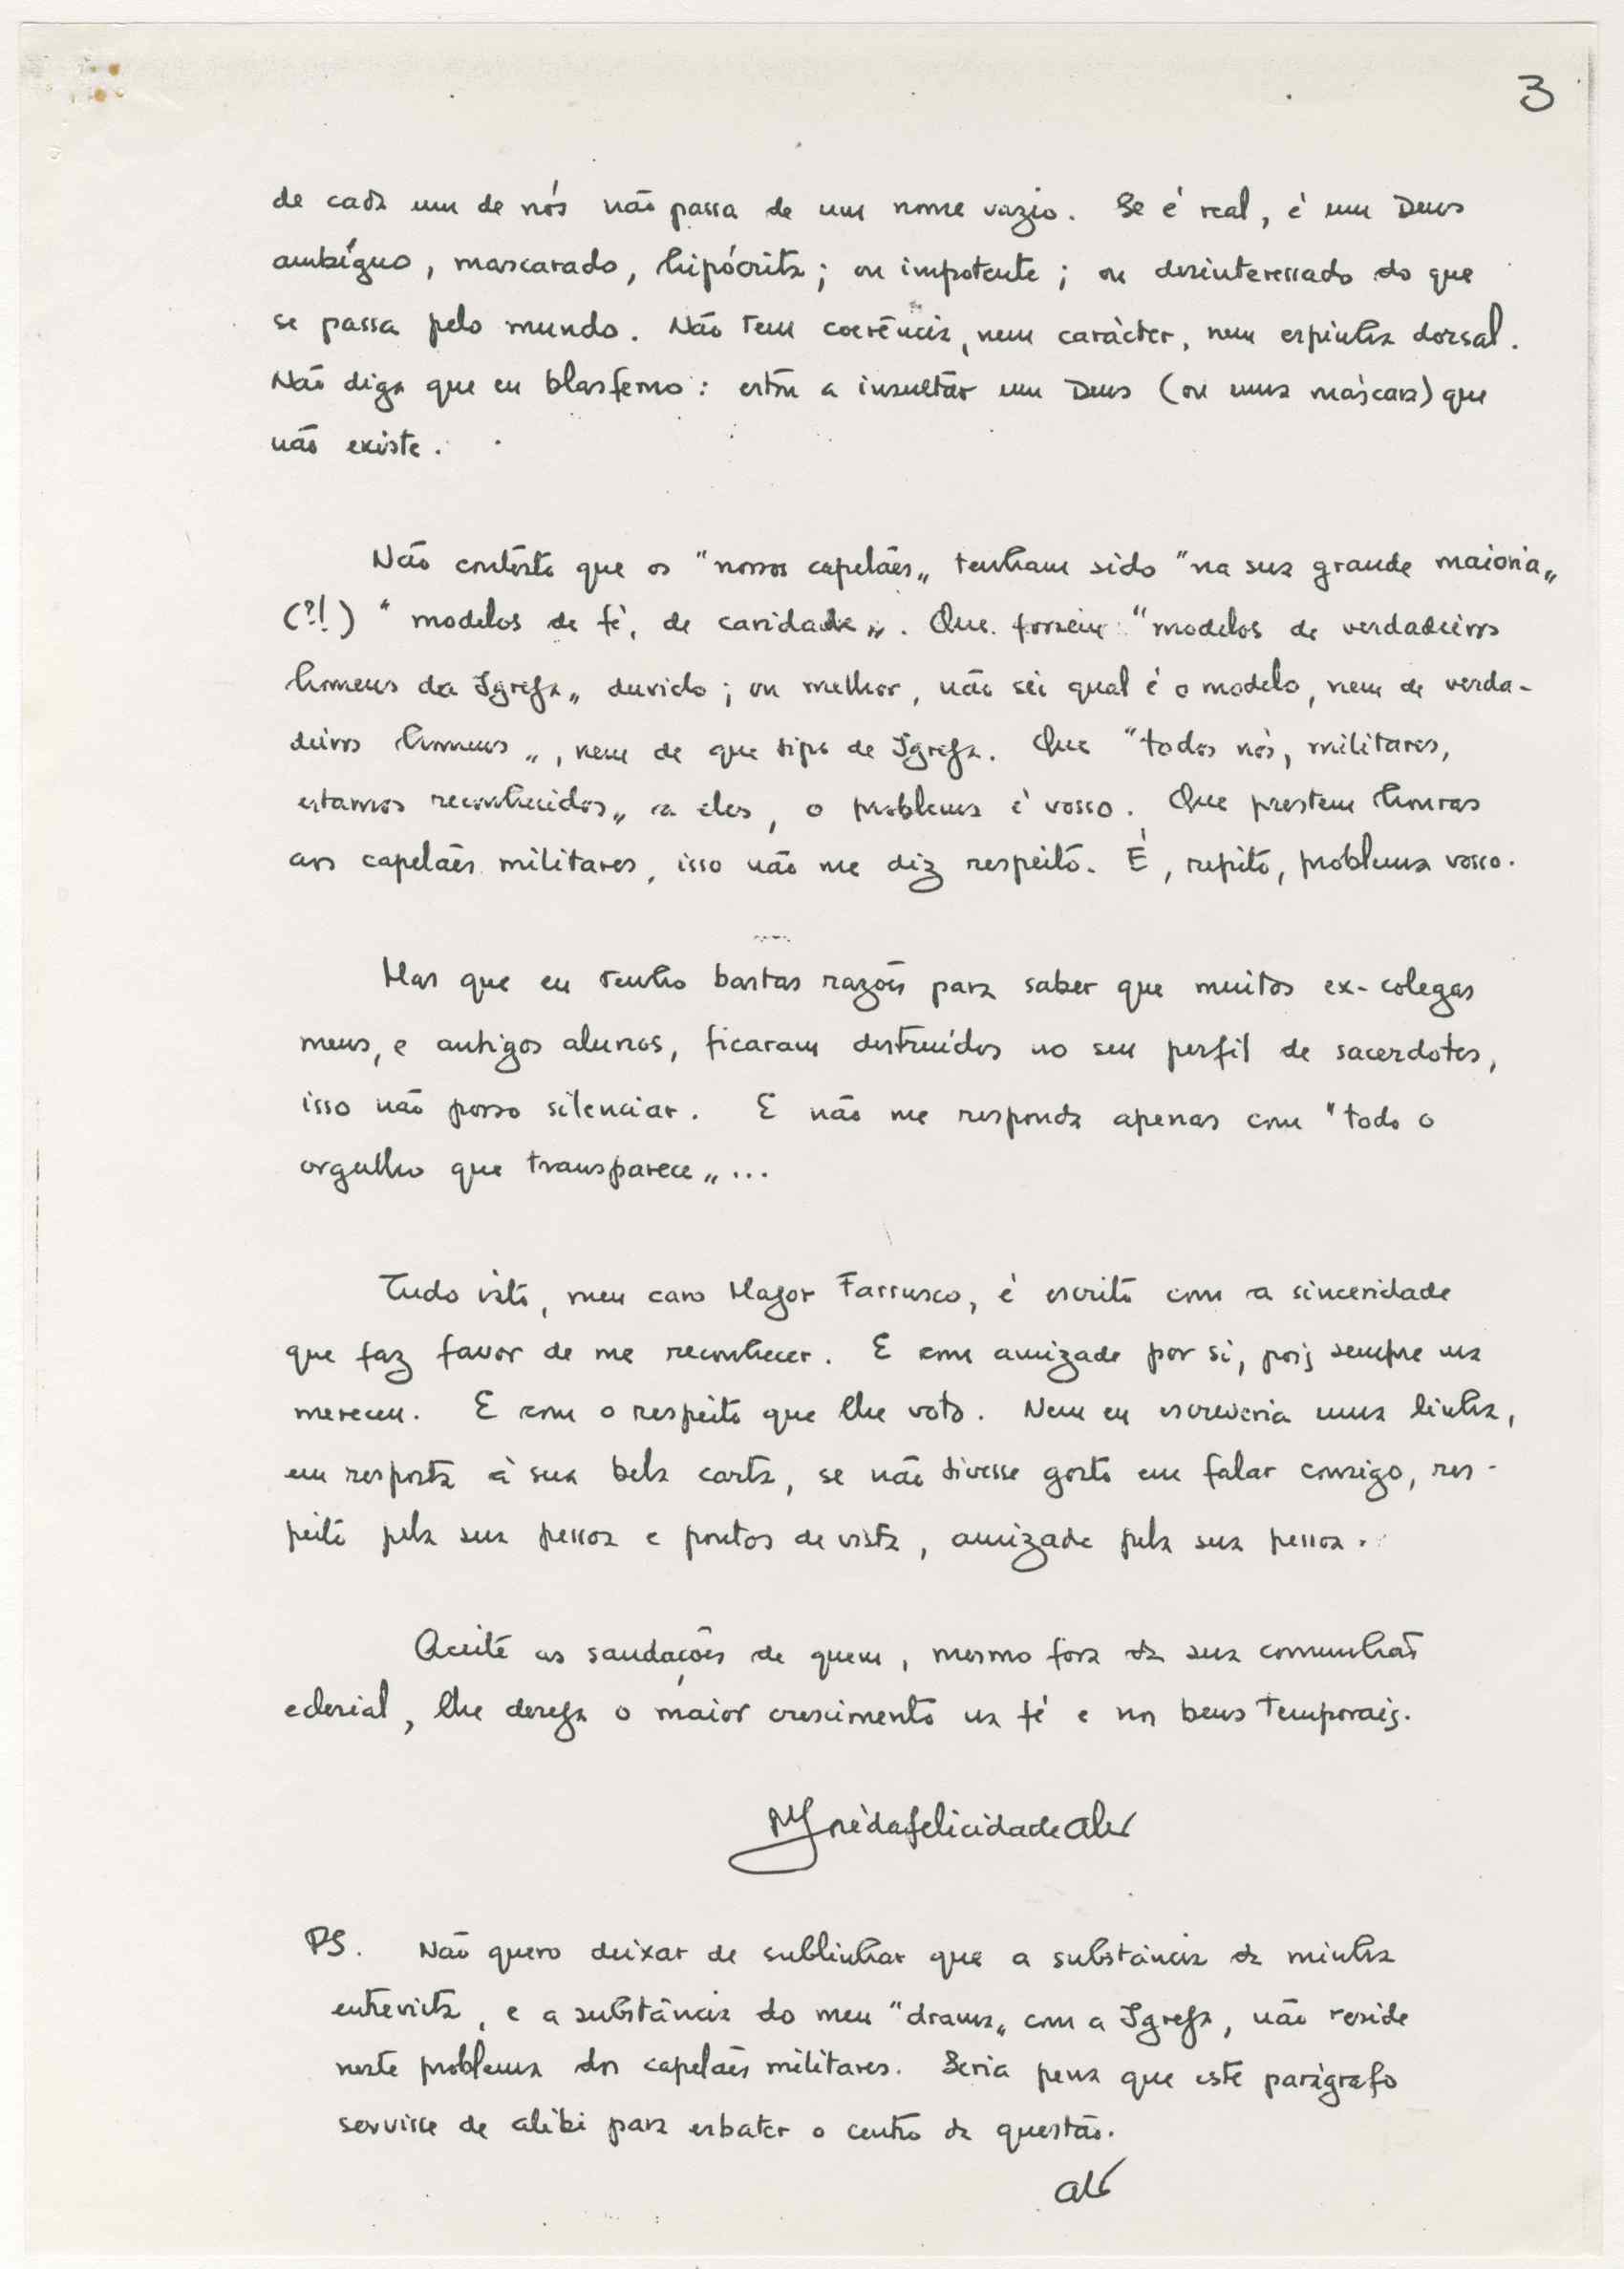 3
de cada um de nós não passa de um nome vazio. Se é real, é um Deus
ambíguo, mascarado, hipócrita; ou impotente; ou desinteressado do que
se passa pelo mundo. Não tem coerência, nem carácter, nem espinha dorsal.
Não diga que eu blasfemo: estou a insultar um Deus (ou uma máscara) que
não existe.
Não contesto que os "nossos capelães" tenham sido "na sua grande maioria"
(?!) "modelos de fé, de caridade". Que fossem "modelos de verdadeiros
homens da Igreja" duvido; ou melhor, não sei qual é o modelo, nem de verda-
deiros homens", nem de que tipo de Igreja. Que "todos nós, militares,
estamos reconhecidos" a eles, o problema é vosso. Que prestem honras
aos capelães militares, isso não me diz respeito. É, repito, problema vosso.
Mas que eu tenho bastas razões para saber que muitos ex-colegas
meus, e antigos alunos, ficaram destruídos no seu perfil de sacerdotes,
isso não posso silenciar. E não me responda apenas com "todo o
orgulho que transparece"...
Tudo isto, meu caro Major Farrusco, é escrito com a sinceridade
que faz favor de me reconhecer. E com amizade por si, pois sempre ma
mereceu. E com o respeito que lhe voto. Nem eu escreveria uma linha,
em resposta à sua bela carta, se não tivesse gosto em falar consigo, res-
peito pela sua pessoa e pontos de vista, amizade pela sua pessoa.
Aceite as saudações de quem, mesmo fora da sua comunhão
eclesial, lhe deseja o maior crescimento na fé e nos bens temporais.
José da felicidade alves
PS. Não quero deixar de sublinhar que a substância da minha
entrevista, e a substância do meu "drama" com a Igreja, não reside
neste problema dos capelães militares. Seria pena que este parágrafo
servisse de alibi para esbater o centro da questão.